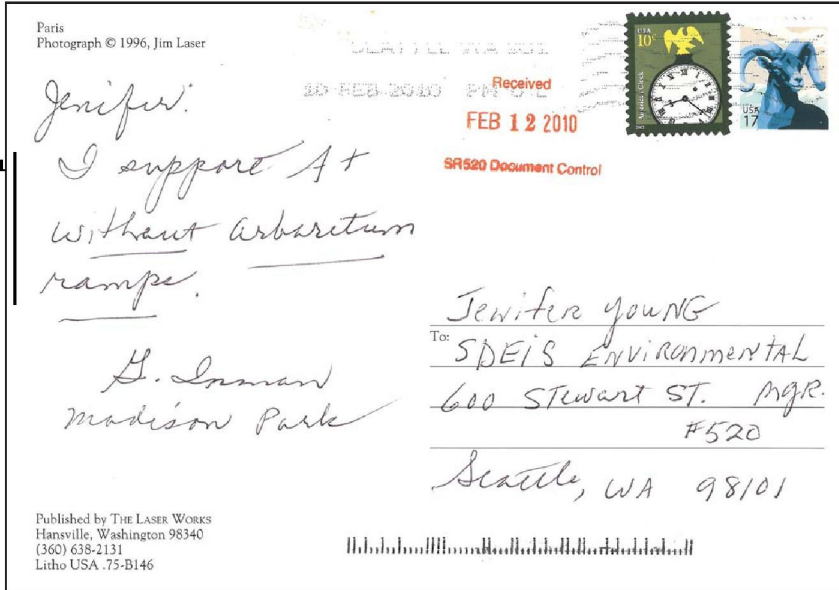 Paris
Photograph © 1996, Jim Laser
SEATTLE WA 981
10 FEB 2010 PM
Received
FEB 12 2010
SR520 Document Control
USA
10¢
American Clock
USA
17
Jenifer:
I support A+
without arboretum
ramps.
G. Inman
Madison Park
To:
Jenifer YOUNG
SDEIS ENVIRONMENTAL
600 Stewart ST. MGR.
#520
Seattle, WA 98101
Published by THE LASER WORKS
Hansville, Washington 98340
(360) 638-2131
Litho USA .75-B146